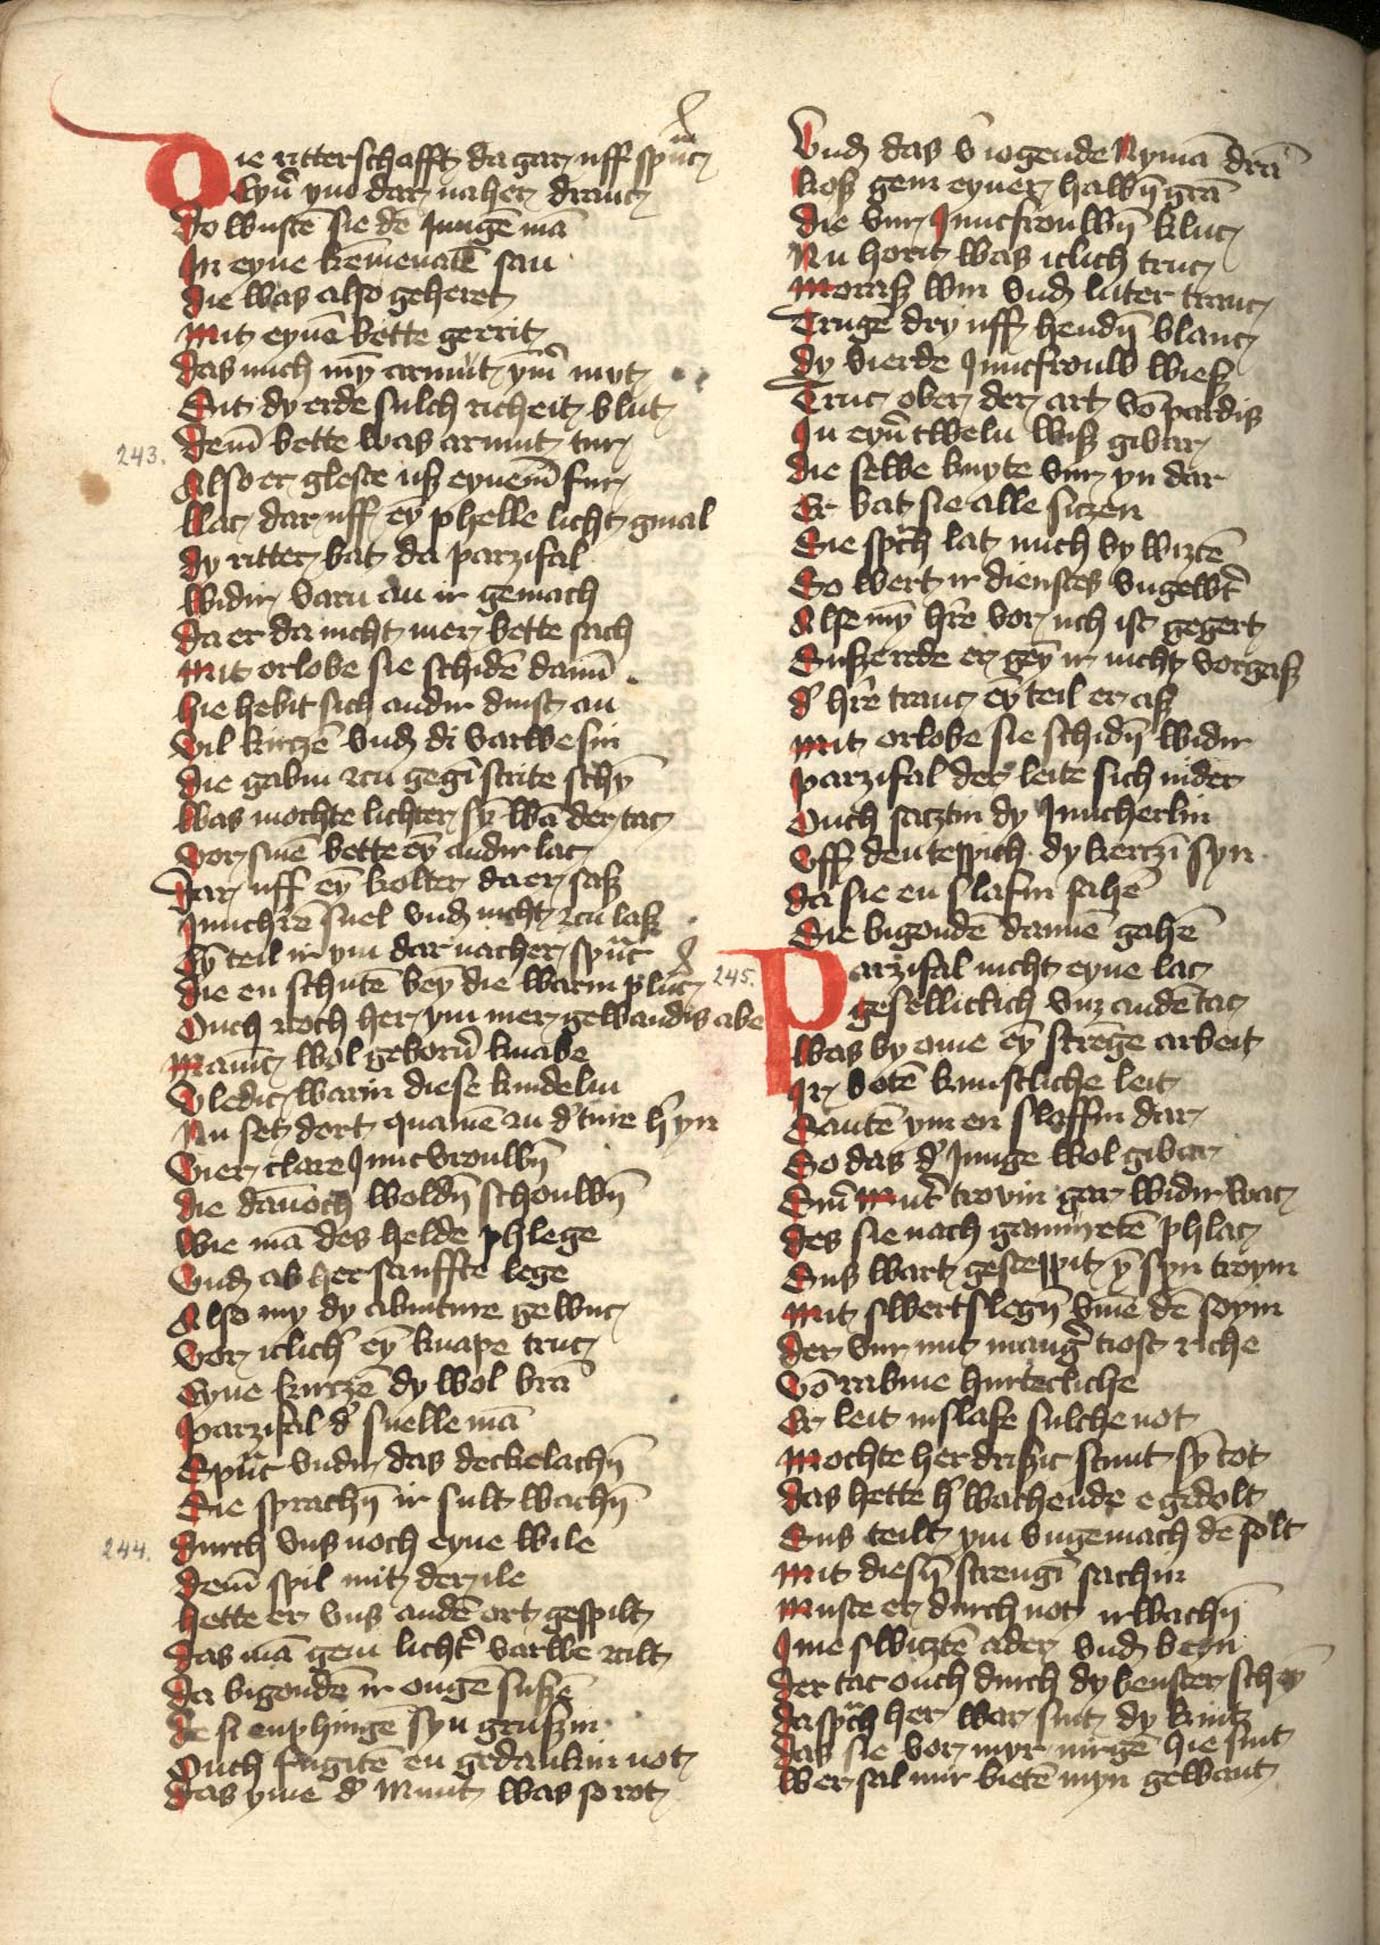 Die ritterschafft da gar uff spūc
Eyn̄ ym dar naher dranc
do wustē sie dē Jungē mā
In eyne kēmenatē san
die was also geheret
Mit eynē bette geerit
das mich mȳ armut ym̄ mut
Sit dy erde sulch richeit blut
dem̄ bette was armut tur
Also er gleste uß eynem̄ fur
llac dar uff eȳ phelle licht gmal
dy ritter bat da parzifal
widir varn an ir gemach
da er da nicht mer bette sach
Mit orlobe sie schidē dann̄
hie hebit sich andir dinst an
vil kirczē vnd di varwe sin
die gabin zcu gegī strite schȳ
was mochte lichter sȳ wā der tac
vor sinē bette eȳ andir lac
dar uff eȳ kolter da er saß
Junchrē snel vnd nicht zcu laß
Eȳ teil ir ym dar nacher spūc
die en schutē beȳ die warin plāc
Ouch zoch her ym mer gewandis abe
Manic wol geborn̄ knabe
vledic warin diese kindelin
Nu set dort quamē zu d' ture h' yn
vier clare Juncvrouwn̄
die dānoch woldn̄ schouwn̄
wie mā des helde phlege
vnd ab her sanffte lege
Also my dy abinture gewuc
vor iclich' eȳ knape truc
Eyne kirczē dy wol brā
parzifal d' snelle mā
Spūc vndir das deckelachn̄
Sie sprachn̄ ir sult wachn̄
durch vns noch eyne wile
dem̄ spil mit der ile
hette er vns andē ort gespilt
das mā gein licht' varwe zcilt
da bigondē ir ougē sußē
de si enphinge syn grußin
Ouch fugitē en gedankin not
das yme d' Munt was so rot
Vnd das v' iogende Nymā drā
kos gein eyner halwn̄ grā
die vir Juncfrouwn̄ kluc
Nu horit was iclich truc
Moraß win vnd luter tranc
Trugē dry uff hendn̄ blanc
dy vierde Juncfrouw wieß
Truc ober der art vō pardis
In eyn̄ twelu wiß gibar
die selbe knyte vur yn dar
Er bat sie alle siczen
Sie sp̄ch lat mich by wiztē
So wert ir dienstes vngew't
Alse mȳ h're vor uch ist gegert
Sußer rede er geȳ ir nicht vorgaß
d' h're tranc eȳ teil er aß
Mit orlobe sie schidn̄ widir
parzifal der leite sich nider
Ouch saztin dy Juncherlin
Vff den teppich dy kerczī syn
da sie en slafin sahē
Sie bigondē dannē gahē
Parzifal nicht eyne lac
geselliclich vnz andē tac
was by ome eȳ strēge arbeit
Ir botē kunftliche leit
Santē ym en slaffin dar
So das d' Junge wol gibar
Sin̄ Mut' trovin gar widir wac
des sie nach gamuretē phlac
Sus wart gesteppit ȳ syn troym
Mit swertslegn̄ vmē dē soym
der vur mit mang' tiost riche
Vō rabine hurtecliche
Er leit inslafe sulche not
Mochte her drißic stunt sȳ tot
das hette h' wachende e gedolt
Sus teilt ym vngemach dē solt
Mit diesn̄ strengī sachin
Muste er durch not irwachn̄
Ime swicztē ader vnd beyn
der tac ouch durch dy venster scheȳ
da sp̄ch her war sint dy kint
das sie vor myr nirgē hie sint
wer sal mir bietē myn gewant
243.
244.
245.